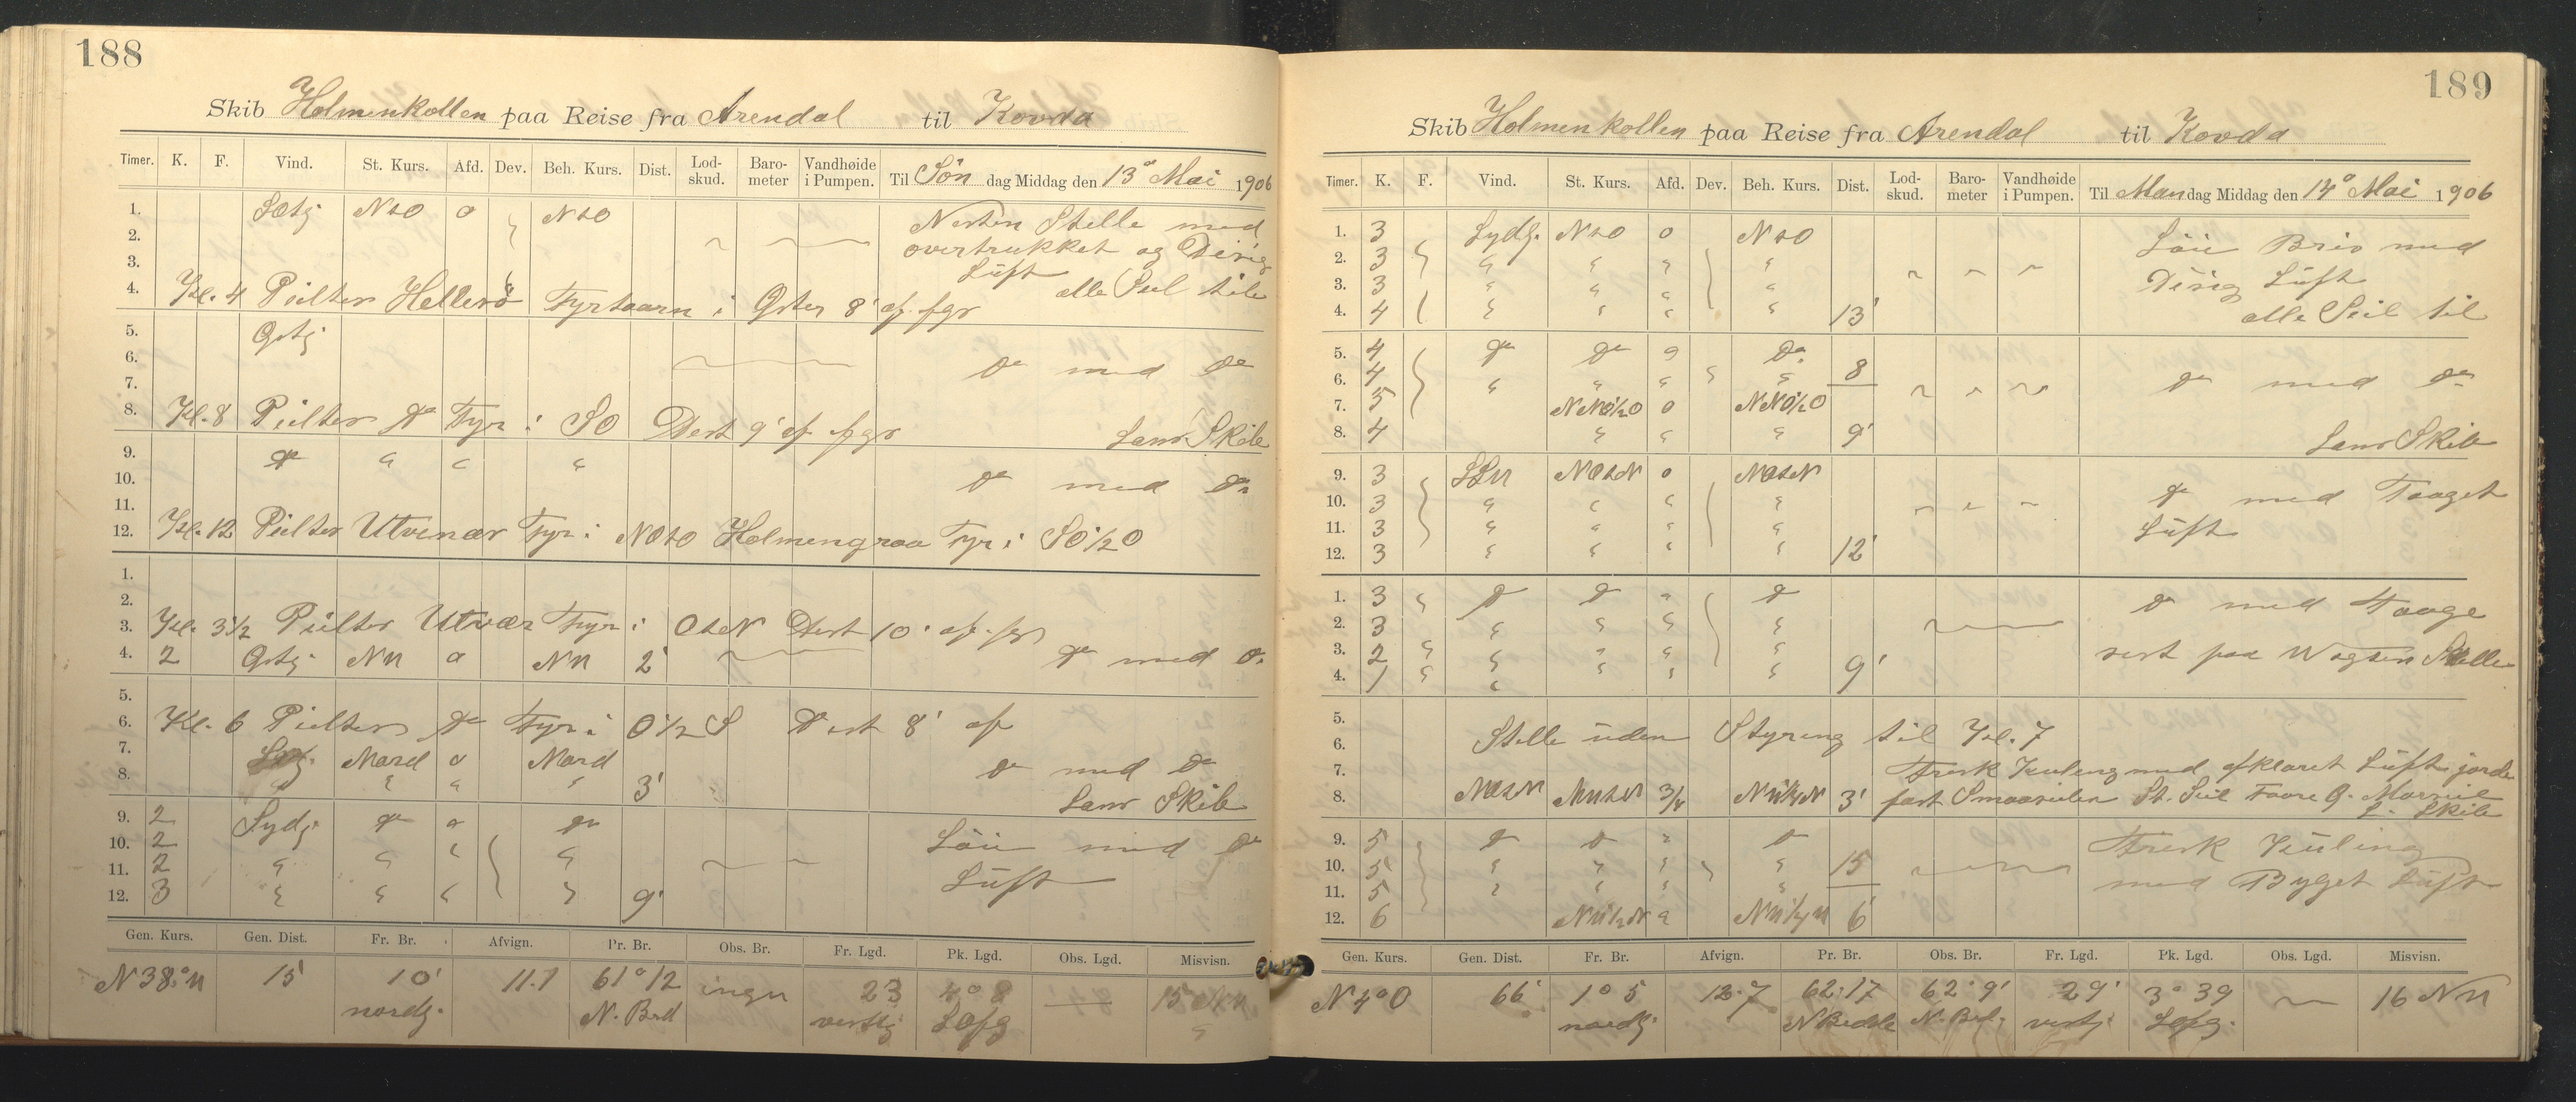 188
Skib Holmenkollen paa Reise fra Arendal til Kovda
Timer. K. F. Vind. St. Kurs. Afd. Dev. Beh. Kurs. Dist. Lod-skud. Baro-meter Vandhøide i Pumpen. Til Søn dag Middag den 13de Mai 1906
1. NtO 0 NtO Nesten Stille med
2. overtrukket og Disig
3. Luft
4. Kl. 4 Peiltes Hellesö Fyrtaarn i Oster 8' af. fgr alle Seil til
5. Ostj
6. Do med Do
7.
8. Kl. 8 Peiltes Do Fyr i SO Dist 9' af. fgr Lanv. Skib
9. Do " " "
10. Do med Do
11.
12. Kl. 12 Peiltes Utvær Fyr i NOtO Holmengraa Fyr i SO½O
1.
2.
3. Kl. 3½ Peiltes Utvær Fyr i OtN Dist 10' af. fgr
4. 2 Ostj. NW 0 NW 2' Do med Do
5.
6. Kl. 6 Peiltes Do Fyr i O½S Dist 8' af
7. Nord 0 Nord Do med Do
8. " " " 3' Lanv Skib
9. 2 Sydj. Do 0 Do
10. 2 Löi med Do
11. 2 " " " Luft
12. 3 " " " " 9'
Gen. Kurs. Gen. Dist. Fr. Br. Afvign. Pr. Br. Obs. Br. Fr. Lgd. Pk. Lgd. Obs. Lgd. Misvisn.
N 38° W 15 10' 11.1 61° 12 ingen 23 4° 8 — 15
nordg. N. Brd vestlj
189
Skib Holmenkollen paa Reise fra Arendal til Kovda
Timer. K. F. Vind. St. Kurs. Afd. Dev. Beh. Kurs. Dist. Lod-skud. Baro-meter Vandhøide i Pumpen. Til Man dag Middag den 14de Mai 1906
1. 3 Sydlj. NtO 0 NtO Löi Bris med
2. 3 " " " " Disig Luft
3. 3 " " " "
4. 4 " " " " 13' alle Seil til
5. 4 Do Do 0 Do
6. 4 " " " " 8 Do med Do
7. 5 NNO½O 0 NNO½O
8. 4 " " " 9' Lanv Skib
9. 3 SSW NOtN 0 NOtN
10. 3 " " " " Do med Taaget
11. 3 " " " " Luft
12. 3 " " " " 12'
1. 3 Do Do " Do Do med Taage
2. 3 " " " "
3. 2 " " " "
4. 1 " " " " 9'
5.
6. Stille uden Styring til Kl. 7
7. Frisk Kuling med afklaret Luft gjorde
8. NOtN 3/4 3' fast Smaaseilen St. Seil Foore L. Skib
9. 5 Do Do " Do Frisk Kuling
10. 5 " " " " 15
11. 5 " " " " med Byget Luft
12. 6 6'
Gen. Kurs. Gen. Dist. Fr. Br. Afvign. Pr. Br. Obs. Br. Fr. Lgd. Pk. Lgd. Obs. Lgd. Misvisn.
N 4° O 66' 1° 5 12.7 62° 17 62° 9' 29' 3° 39 16 NW
nordlj. N Bredde N. Brd. vestlj.